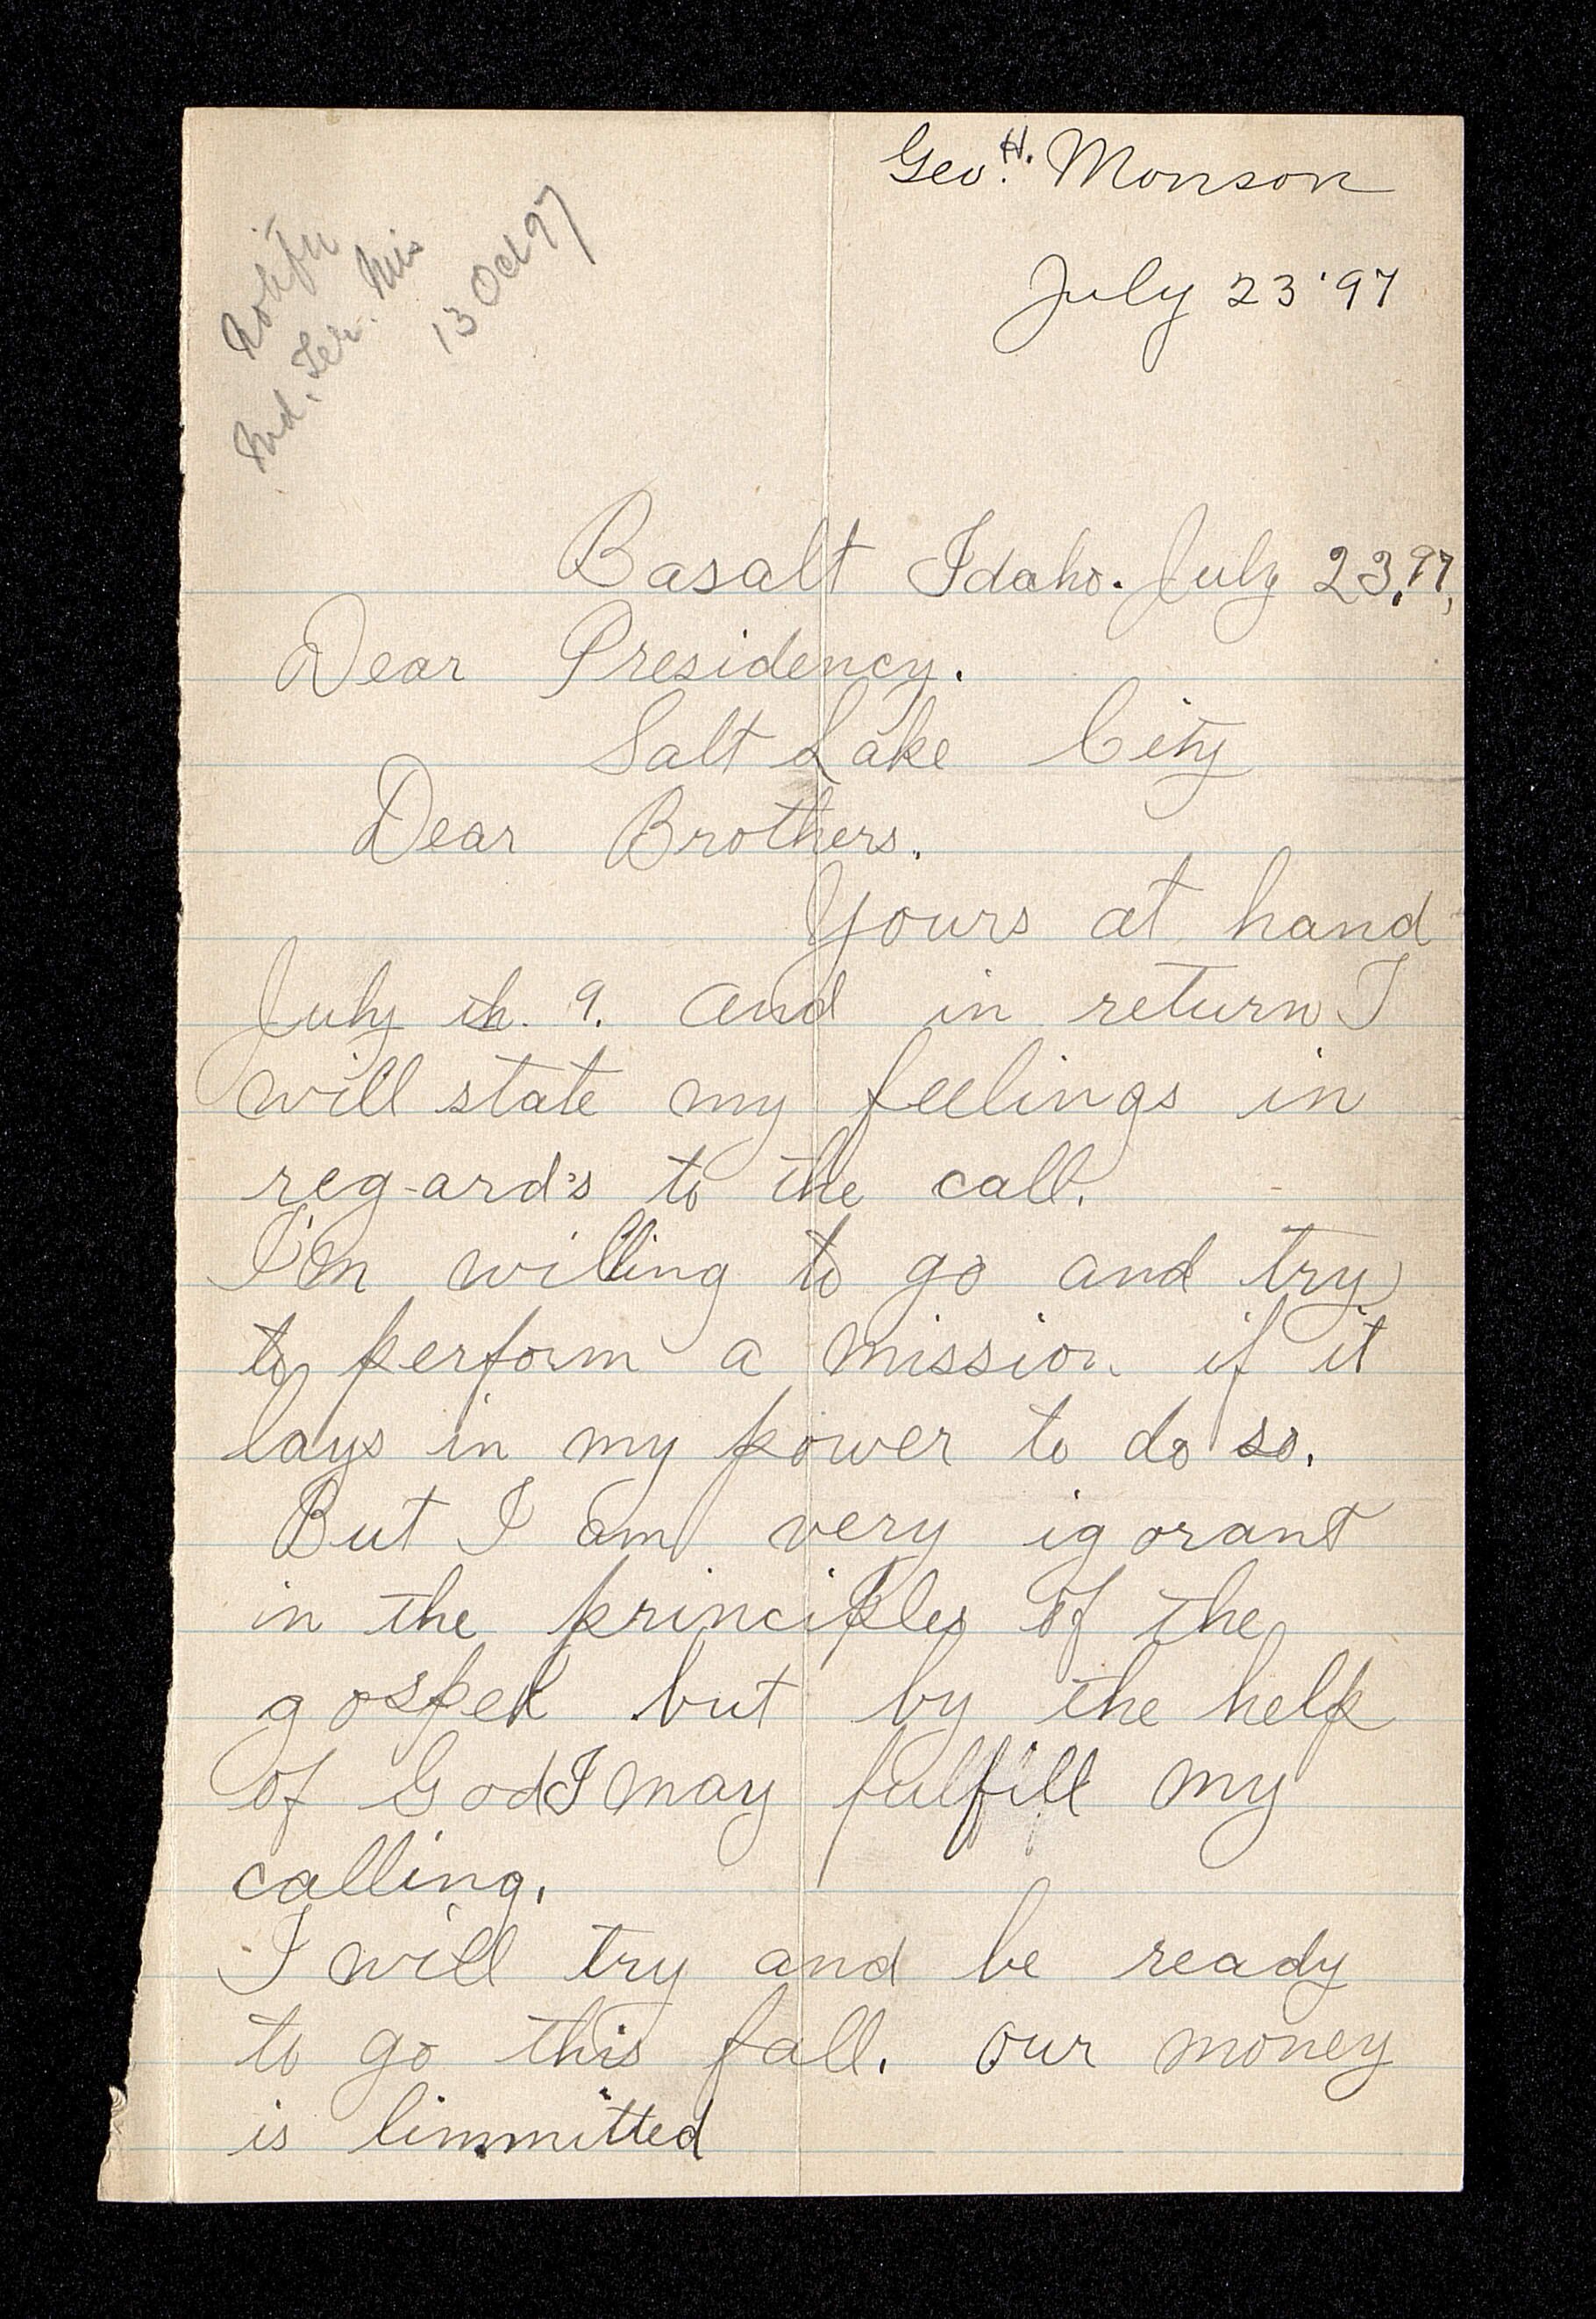 Geo. H. Monson
July 23 '97
Ind. Ter. Mis
13 Oct 97
Basalt Idaho. July 23, 97,
Dear Presidency.
Salt Lake City
Dear Brothers.
Yours at hand
July th. 9. and in return I
will state my feelings in
reg-ard's to the call.
I'm willing to go and try
to perform a mission if it
lays in my power to do so.
But I am very igorant
in the principles of the
gospel but by the help
of God I may fulfill my
calling.
I will try and be ready
to go this fall. our money
is limmitted